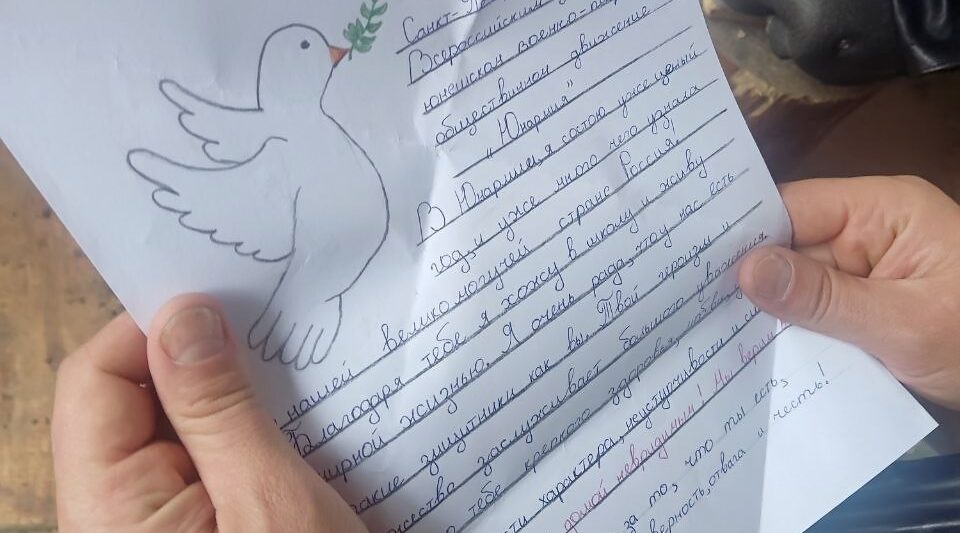 Санкт-
Всероссийским
юнешской военно-па
общественном движение
„Юнармия"
В Юнармией, я состою уже целый
год, и уже много чего узнала
нашей великомогучей стране Россия.
Благодаря тебе я хожу в школу и живу
мирной жизнью. Я очень рада, что у нас есть
такие защитники как вы. Твой героизм и
жество заслуживает большого уважения
тебе крепкого здоровья,
сти характера, неуступчивости и
домой невридимым! Мы
за то, что ты есть,
верность, отвага и честь!